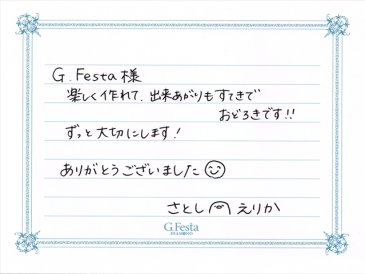 G.Festa様
楽しく作れて、出来あがりもすてきで
おどろきです!!
ずっと大切にします!
ありがとうございました
さとし えりか
G.Festa
DIAMOND